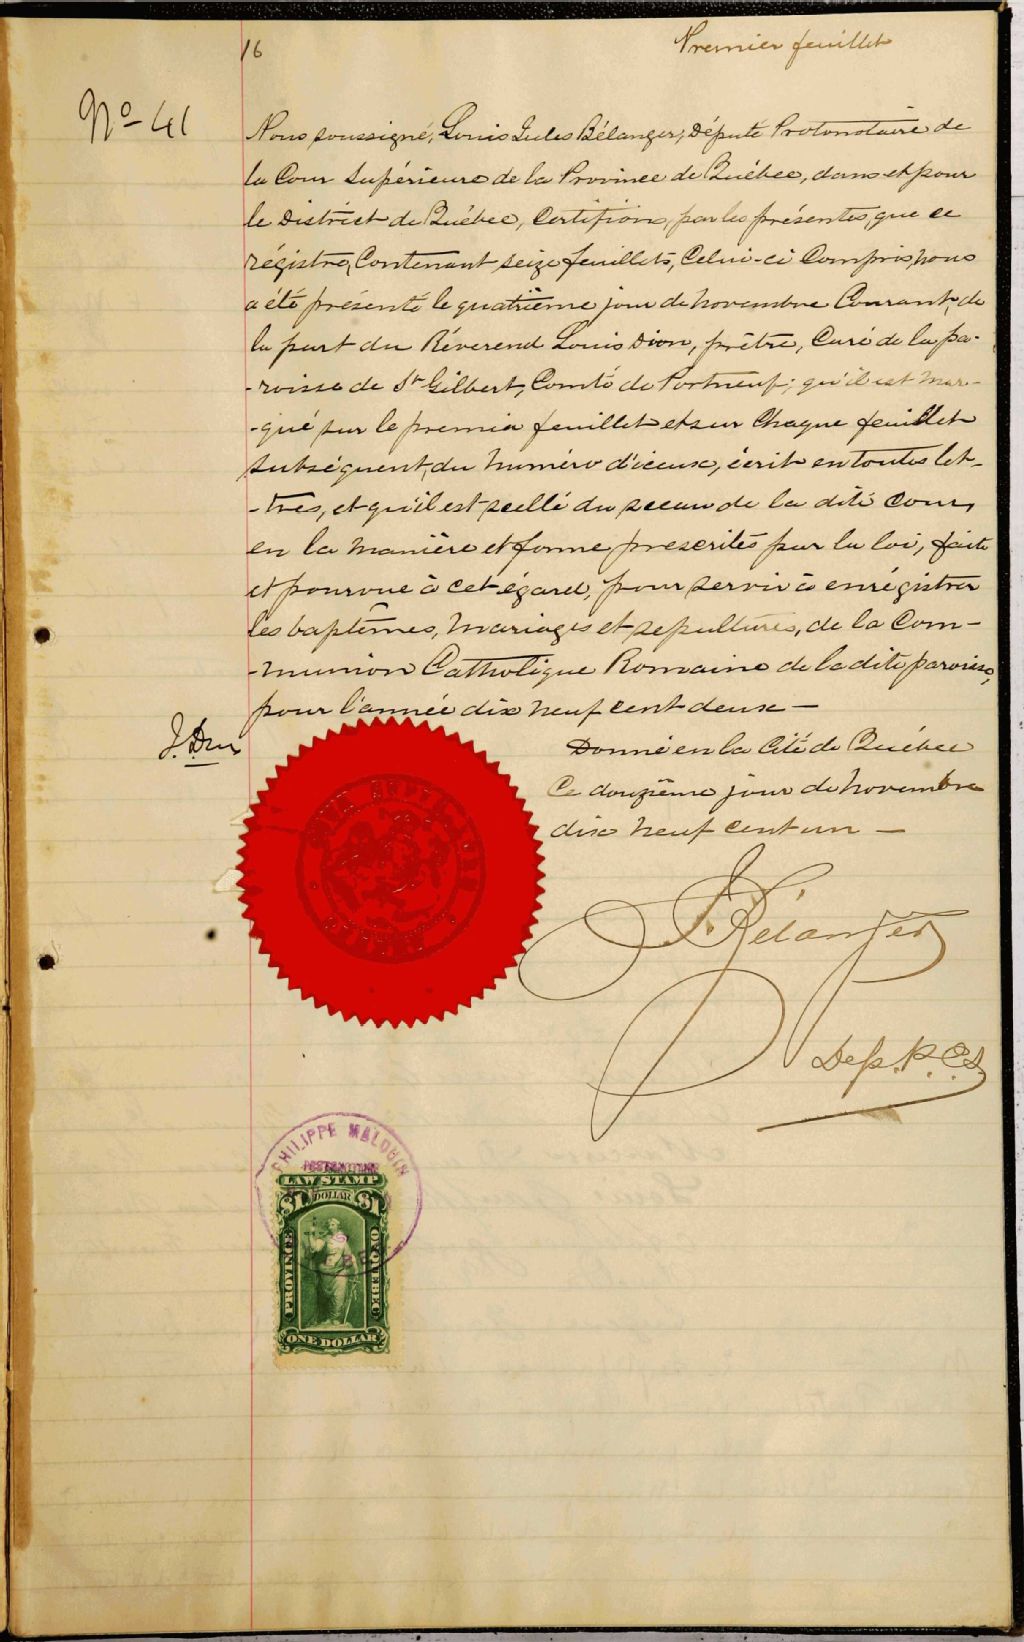 16
Premier feuillet
No- 41
Nous soussigné, Louis Jules Bélanger, Député Protonotaire de
la Cour Supérieure de la Province de Québec, dans et pour
le District de Québec, Certifions, par les présentes, que ce
régistre, Contenant seize feuillets, Celui-ci Compris, nous
a été présenté le quatrième jour de novembre Courant, de
la part du Révérend Louis Dion, prêtre, Curé de la pa-
-roisse de St Gilbert, Comté de Portneuf; qu'il est mar-
-qué sur le premier feuillet et sur Chaque feuillet
subséquent, du numéro d'iceux, écrit en toutes let-
-tres, et qu'il est scellé du sceau de la dite Cour,
en la manière et forme prescrites par la loi, faite
et pourvue à cet égard, pour servir à enrégistrer
les baptêmes, mariages et sepultures, de la Com-
-munion Catholique Romaine de la dite paroisse,
pour l'année dix neuf cent deux —
Donné en la Cité de Québec
Ce douzième jour de novembre
dix neuf cent un —
Bélanger
Dep. P. C.S.
PHILIPPE MALOUIN
PROTONOTAIRE
LAW STAMP
$1 DOLLAR $1
PROVINCE
OF QUEBEC
ONE DOLLAR